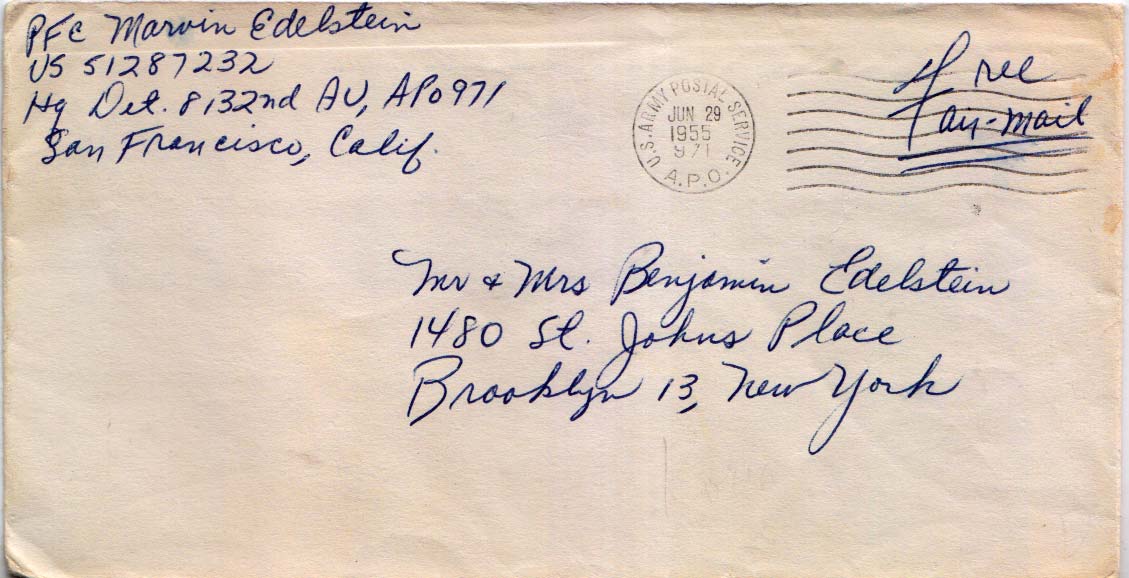 PFC Marvin Edelstein
US 51287232
Hq Det. 8132nd AU, APO 971
San Francisco, Calif.
U.S. ARMY POSTAL SERVICE
JUN 29
1955
971
A.P.O.
Free
air-mail
Mr & Mrs Benjamin Edelstein
1480 St. Johns Place
Brooklyn 13, New York